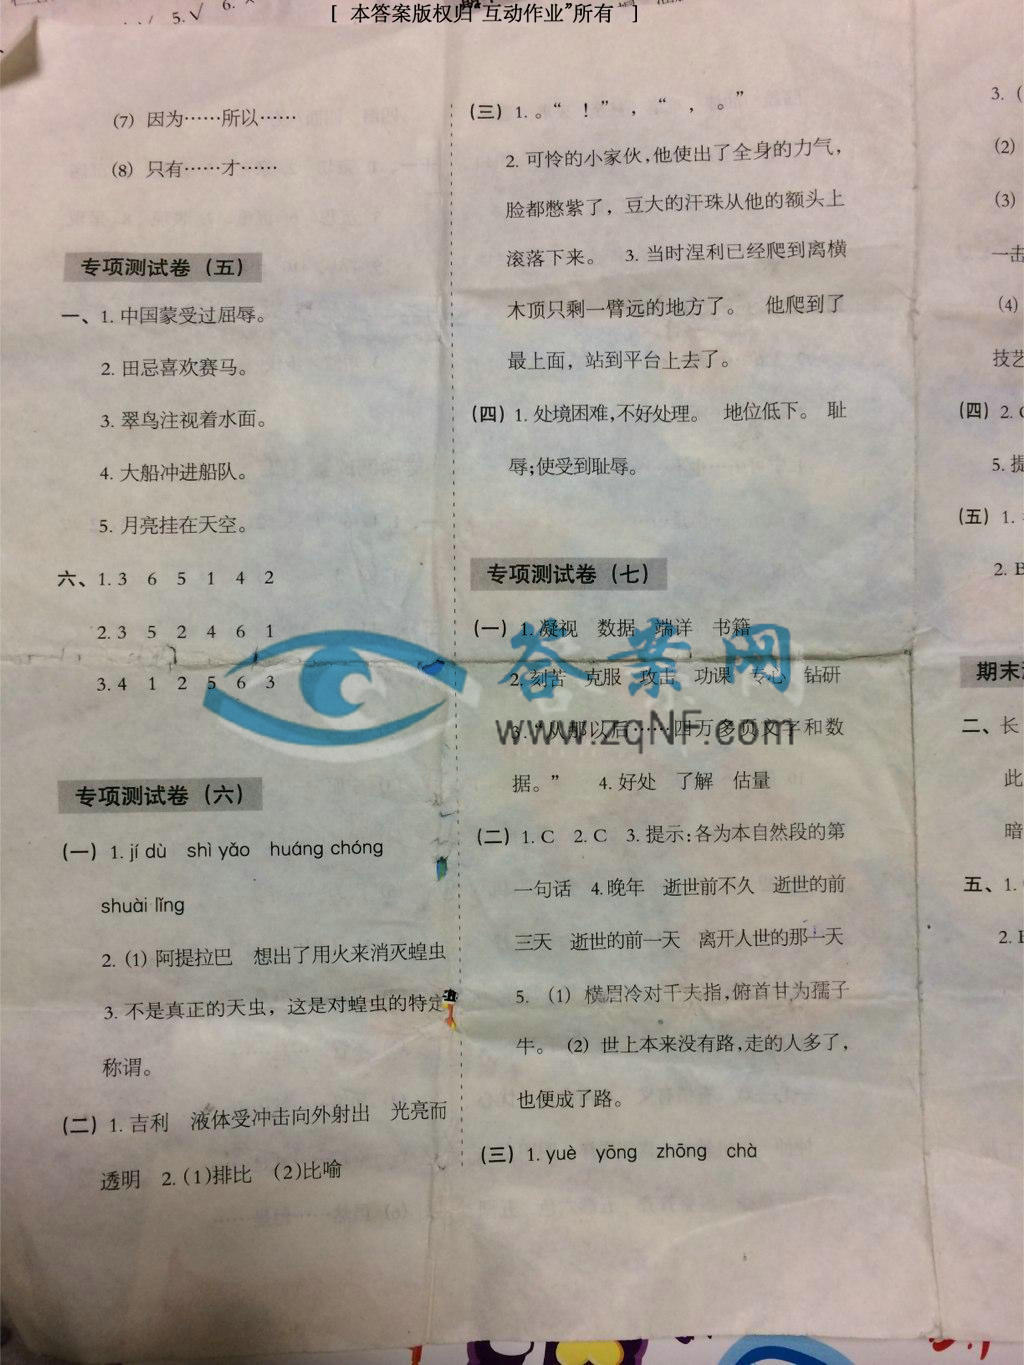 [ 本答案版权归"互动作业"所有 ]
5.√ 6.
(7) 因为……所以……
(8) 只有……才……
专项测试卷 (五)
一、1. 中国蒙受过屈辱。
2. 田忌喜欢赛马。
3. 翠鸟注视着水面。
4. 大船冲进船队。
5. 月亮挂在天空。
六、1. 3 6 5 1 4 2
2. 3 5 2 4 6 1
3. 4 1 2 5 6 3
专项测试卷 (六)
(一) 1. jí dù shì yǎo huáng chóng
shuài lǐng
2. (1) 阿提拉巴 想出了用火来消灭蝗虫
3. 不是真正的天虫，这是对蝗虫的特定
称谓。
(二) 1. 吉利 液体受冲击向外射出 光亮而
透明 2. (1)排比 (2)比喻
(三) 1. 。“ ！”，“ ，。”
2. 可怜的小家伙,他使出了全身的力气，
脸都憋紫了，豆大的汗珠从他的额头上
滚落下来。 3. 当时涅利已经爬到离横
木顶只剩一臂远的地方了。 他爬到了
最上面，站到平台上去了。
(四) 1. 处境困难,不好处理。 地位低下。 耻
辱;使受到耻辱。
专项测试卷 (七)
(一) 1. 凝视 数据 端详 书籍
2. 刻苦 克服 攻击 功课 专心 钻研
3. “从那以后……四万多页文字和数
据。” 4. 好处 了解 估量
(二) 1. C 2. C 3. 提示:各为本自然段的第
一句话 4. 晚年 逝世前不久 逝世的前
三天 逝世的前一天 离开人世的那一天
5. (1) 横眉冷对千夫指,俯首甘为孺子
牛。 (2) 世上本来没有路,走的人多了，
也便成了路。
(三) 1. yuè yōng zhōng chà
3. (
(2)
(3)
一击
(4)
技艺
(四) 2.
5. 提
(五) 1.
2. B
期末
二、长
此
暗
五、1.
2.
答案网
www.zqNF.com